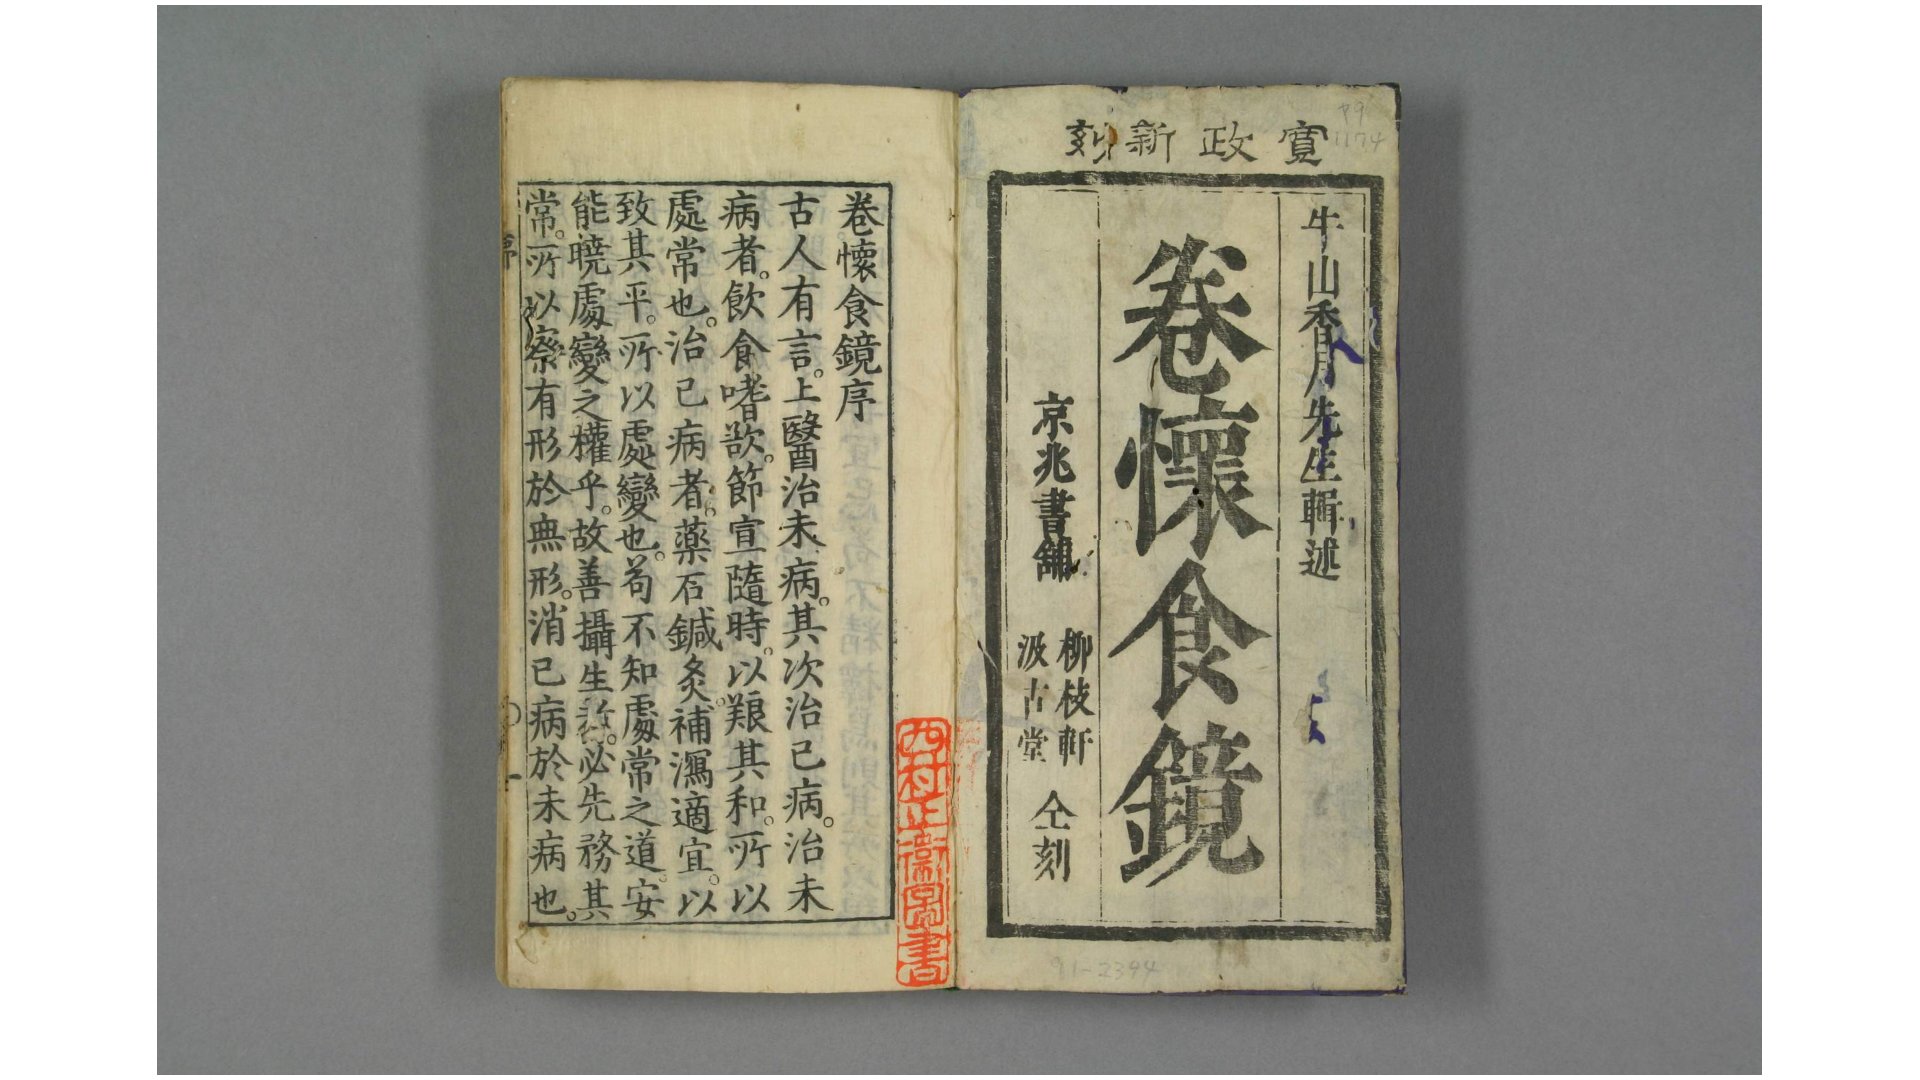 寛政新刻
牛山香月先生輯述
卷懷食鏡
京兆書舗
柳枝軒
汲古堂
仝刻
卷懷食鏡序
古人有言。上醫治未病。其次治已病。治未
病者。飲食嗜欲。節宣隨時。以艱其和。所以
處常也。治已病者。藥石鍼灸。補瀉適宜。以
致其平。所以處變也。苟不知處常之道。安
能曉處變之權乎。故善攝生者。必先務其
常。所以察有形於無形。消已病於未病也。
序
一
圖書
99
1174
91-2394